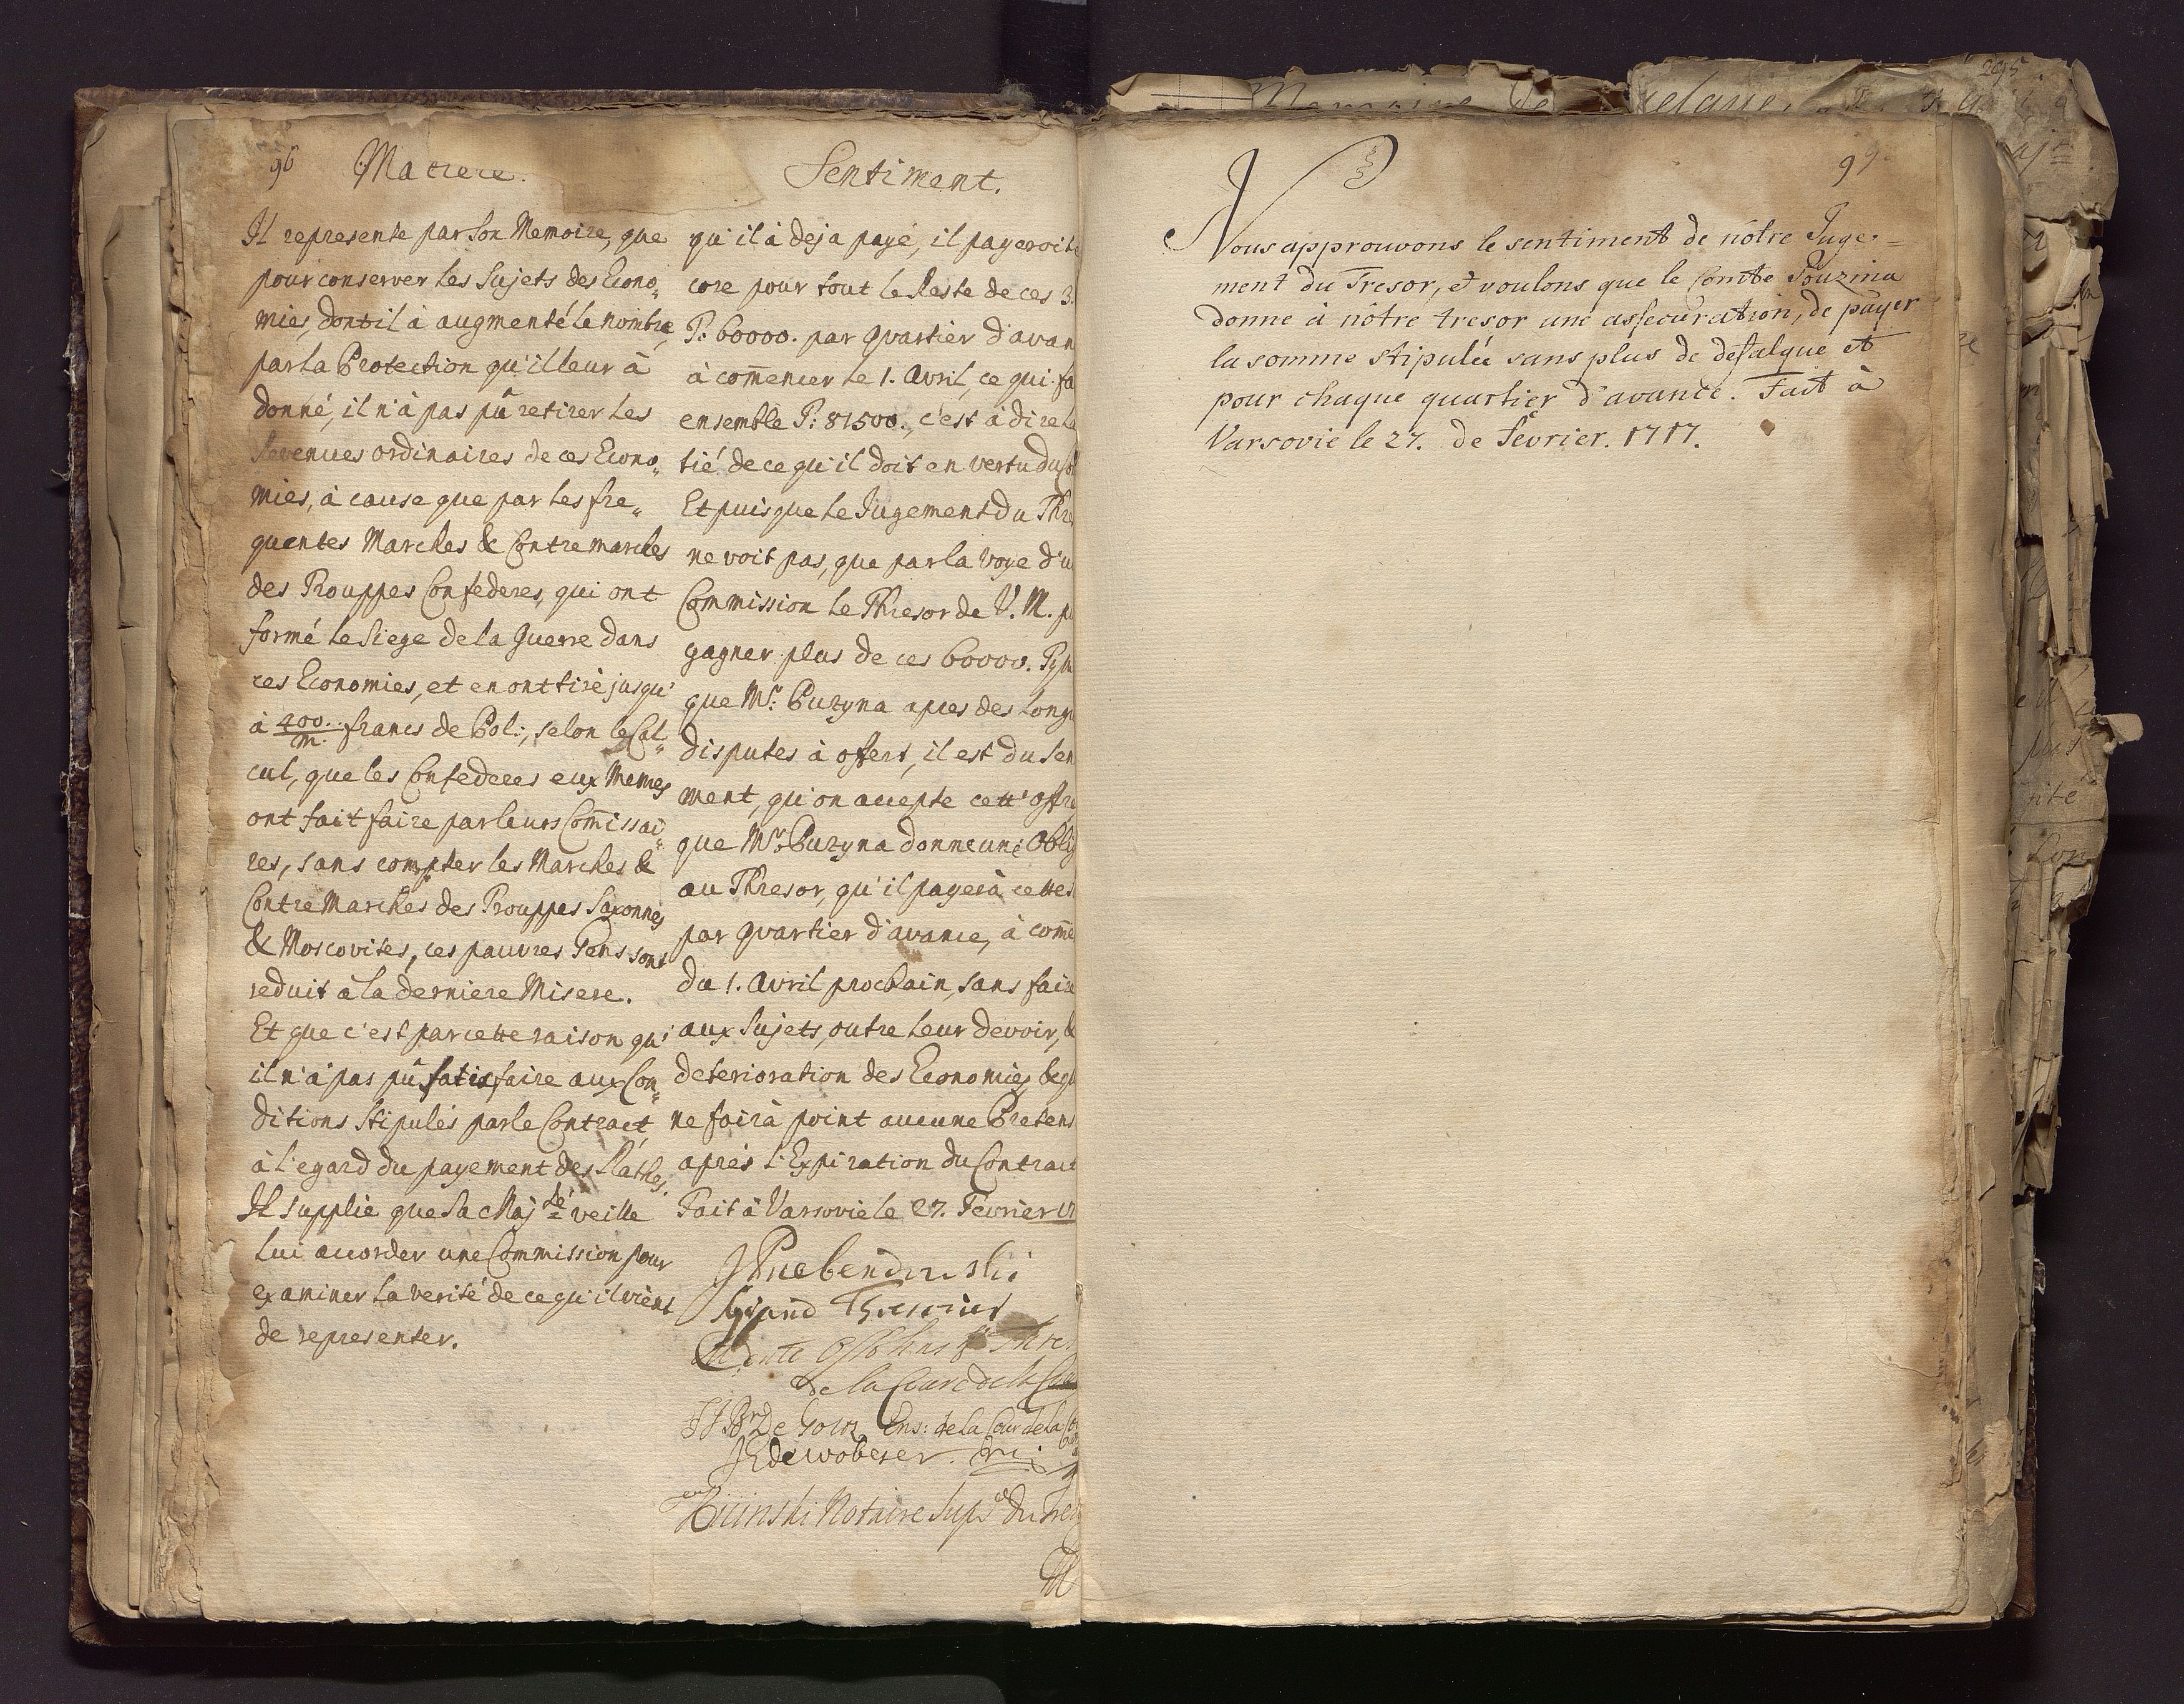 96
Matiere.
Il represente par Son Memoire, que
pour conserver les Sujets des Econo„
mies, dont il à augmenté le nombre,
par la Protection qu'il leur à
donné, il n'à pas pû retirer les
Revenues ordinaires de ces Econo„
mies, à cause que par les fre„
quentes Marches & Contremarches
des Trouppes Confederes, qui ont
formé le Siege de la Guerre dans
ces Economies, et en ont tiré jusqu'
à 400/m. francs de Pol:, selon le Cal„
cul, que les Confederes eux Memes
ont fait faire par leurs Com̃issai„
res, sans compter les Marches &
Contre Marches des Trouppes Saxonnes
& Moscovites, ces pauvres Gens sont
reduit à la derniere Misere.
Et que c'est par cette raison qu'
il n'à pas pû satisfaire aux Con„
ditions Stipulés par le Contract,
à l'egard du payement des Rathes.
Il Supplie que Sa Maj.té veille
lui accorder une Commission pour
examiner la verité de ce qu'il vient
de representer.
Sentiment.
qu'il à deja payé, il payeroit
core pour tout le Reste de ces 3.
P: 60000. par Quartier d'avan
à com̃encer le 1. Avril, ce qui fa
ensemble P: 81500., c'est à dire la
tié de ce qu'il doit en vertu du
Et puisque le Jugement du Thre
ne voit pas, que par la Voye d'u
Commission le Thresor de V. M. p
gagner plus de ces 60000.
que Mr. Puzyna apres des long
disputes à offert, il est du Sen
ment, qu'on accepte cett' offre
que Mr. Puzyna donne une Oblig
au Thresor, qu'il payerà cette s
par Quartier d'avance, à com̃e
du 1. Avril prochain, sans faire
aux Sujets, outre leur devoir, &
deterioration des Economies, le qu
ne fairà point aucune Pretens
aprés l'Expiration du Contract
Fait à Varsovie le 27. Fevrier 17
JPrebendowski
Grand Thresorier
de la Cour de la
de Goltz Ens: de la Cour de la Co
JE de Wobeser
Notaire Sup. du Tres
99
Nous approuvons le sentiment de nôtre Juge=
ment du Tresor, et voulons que le Comte Pouzina
donne à nôtre tresor une assecuration, de payer
la somme stipulée sans plus de defalque et
pour chaque quartier d'avance. Fait à
Varsovie le 27. de fevrier. 1717.
295